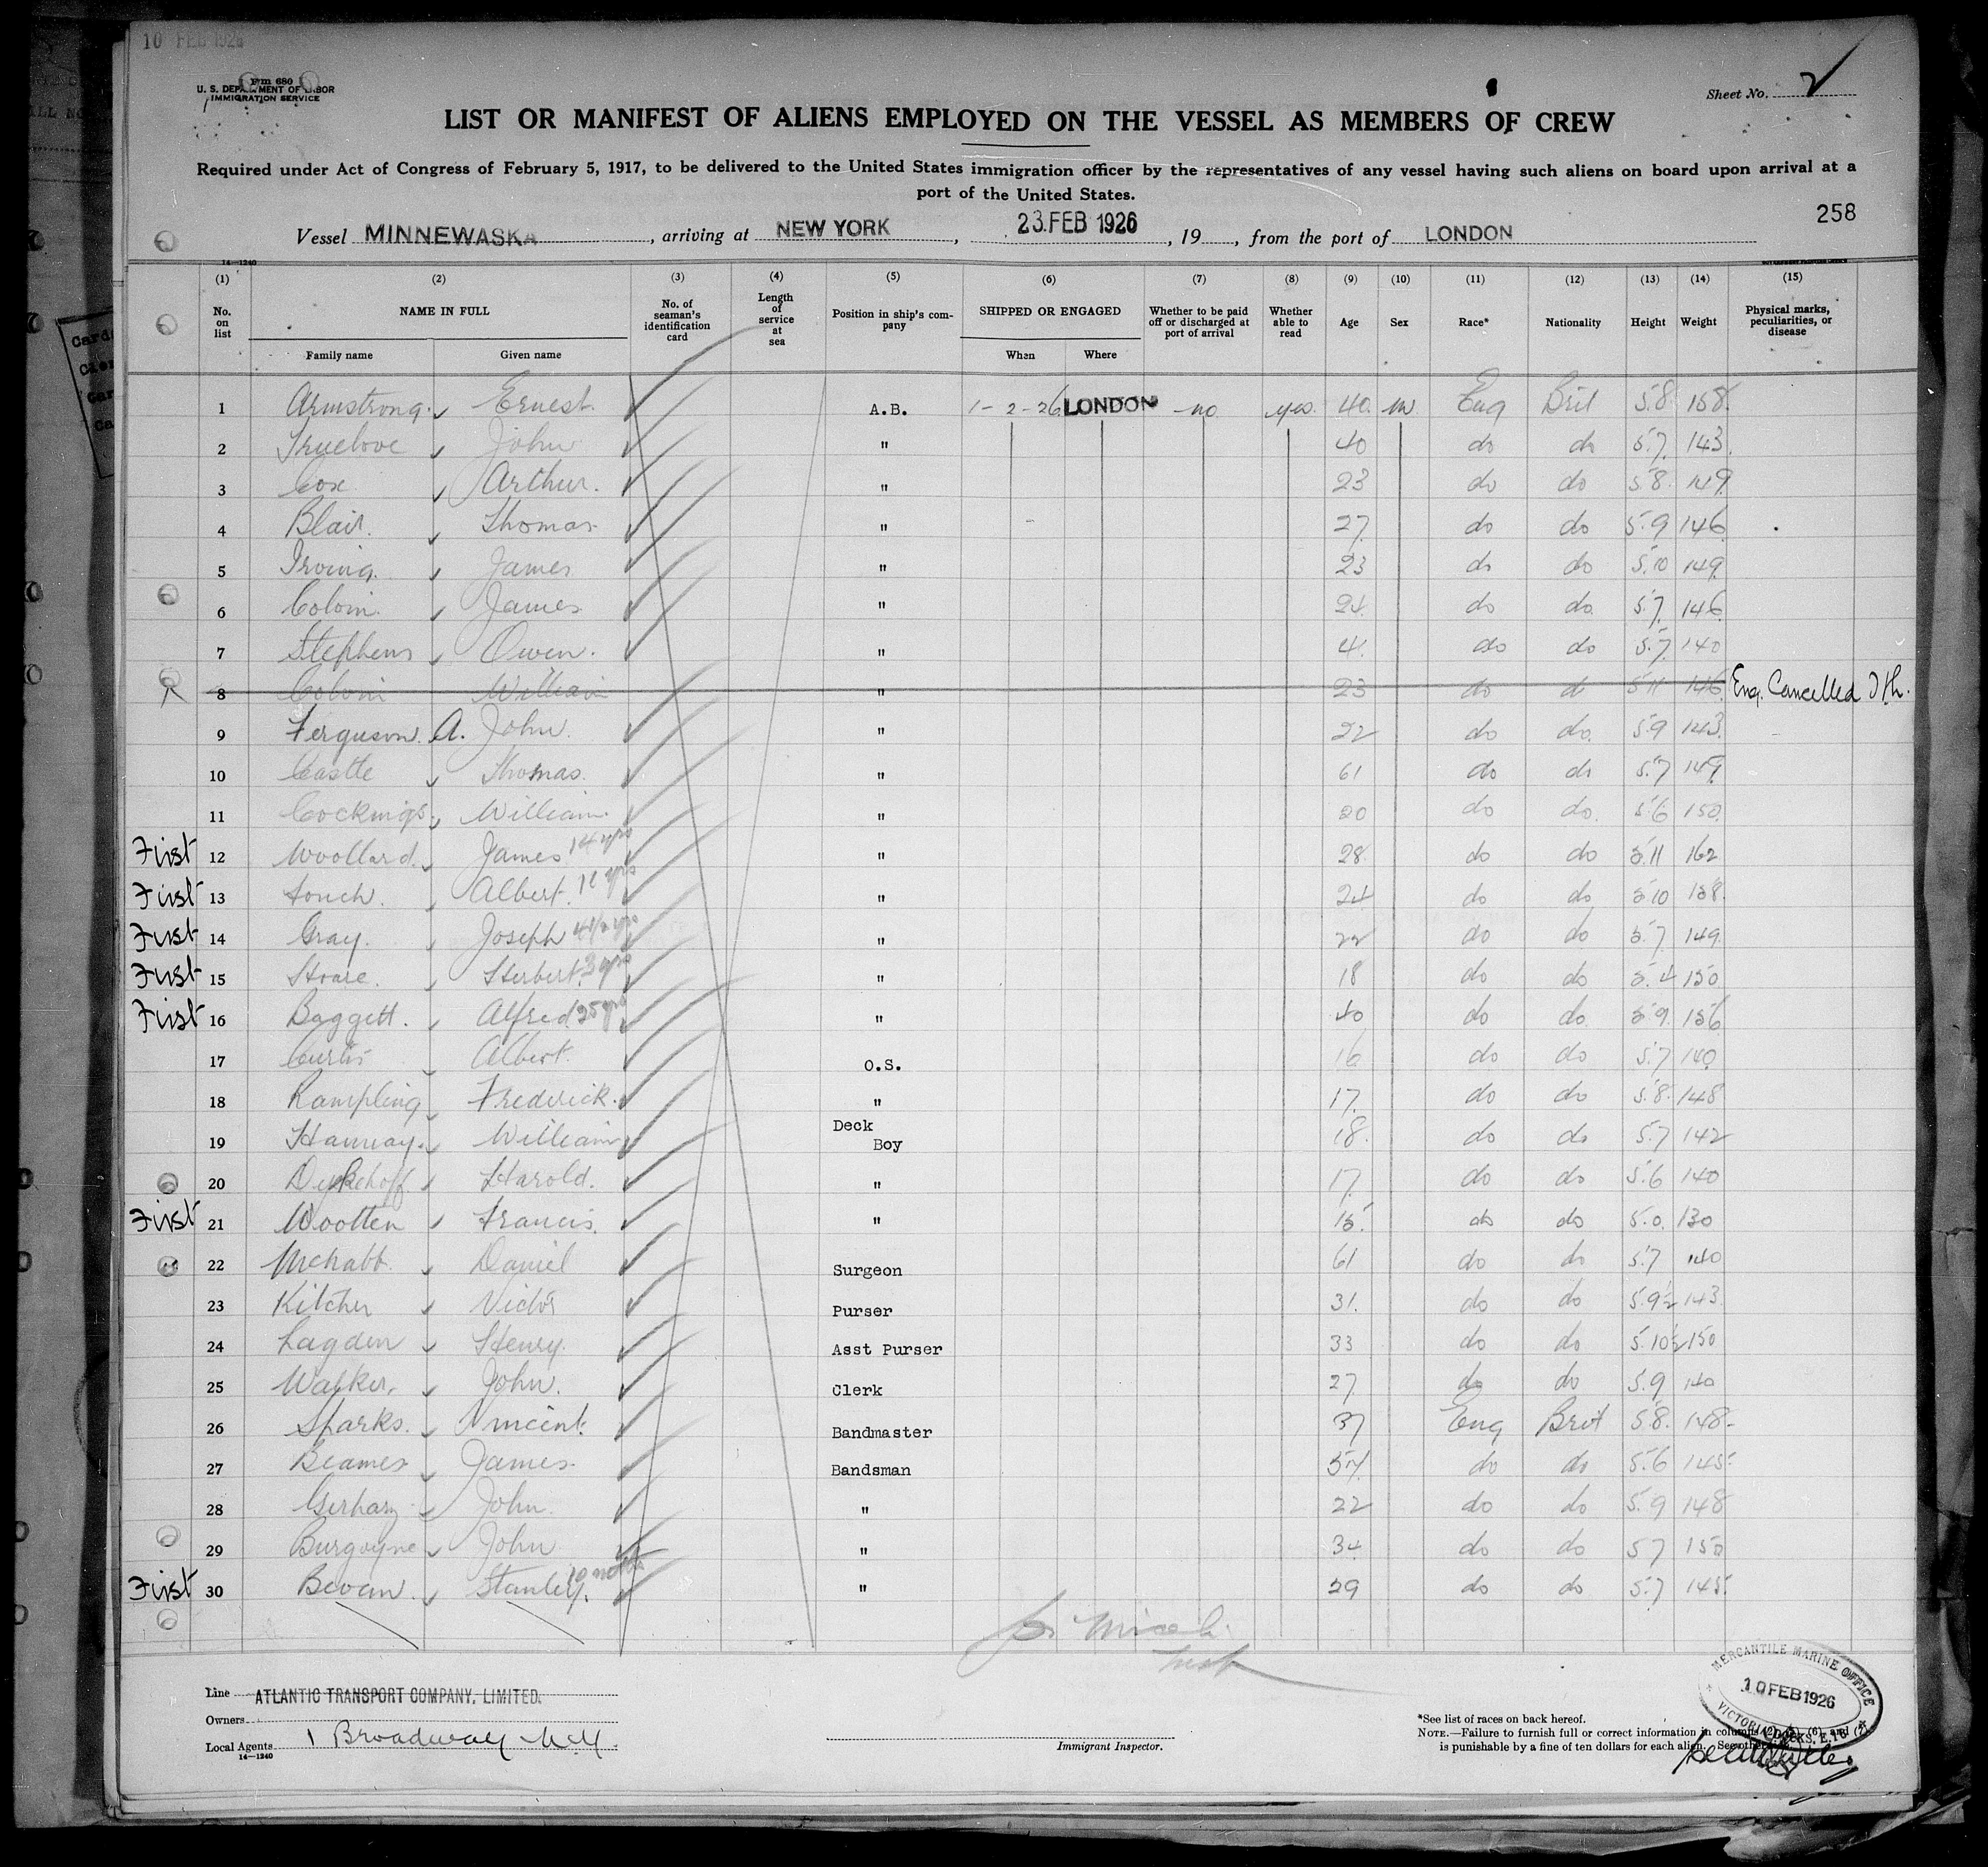 10 FEB 1926
Form 680
U. S. DEPARTMENT OF LABOR
IMMIGRATION SERVICE
Sheet No. 2
LIST OR MANIFEST OF ALIENS EMPLOYED ON THE VESSEL AS MEMBERS OF CREW
Required under Act of Congress of February 5, 1917, to be delivered to the United States immigration officer by the representatives of any vessel having such aliens on board upon arrival at a
port of the United States.
258
Vessel MINNEWASKA, arriving at NEW YORK, 23 FEB 1926, 19, from the port of LONDON
14—1240
(1) (2) (3) (4) (5) (6) (7) (8) (9) (10) (11) (12) (13) (14) (15)
No. on list NAME IN FULL No. of seaman's identification card Length of service at sea Position in ship's company SHIPPED OR ENGAGED Whether to be paid off or discharged at port of arrival Whether able to read Age Sex Race* Nationality Height Weight Physical marks, peculiarities, or disease
Family name Given name When Where
1 Armstrong Ernest A.B. 1-2-26 LONDON no yes 40 m Eng Brit 5.8 158
2 Truelove John " 40 do do 5.7 143
3 Cox Arthur " 23 do do 5.8 149
4 Blair Thomas " 27 do do 5.9 146
5 Irving James " 23 do do 5.10 149
6 James " 24 do do 5.7 146
7 Stephens Owen " do do 5.7 140
8 William " 23 do do 5.11 146 Eng. Cancelled
9 Ferguson A. John " 22 do do 5.9 143
10 Castle Thomas " 61 do do 5.7 149
11 Cockings William " 20 do do 5.6 150
First 12 Woollard James 14 yrs " 28 do do 5.11 162
First 13 Albert yrs " 24 do do 5.10 158
First 14 Gray Joseph 4 1/2 yrs " 22 do do 5.7 149
First 15 Hoare Herbert 3 yrs " 18 do do 5.4 150
First 16 Baggett Alfred 25 yrs " 40 do do 5.9 156
17 Curtis Albert O.S. 16 do do 5.7 140
18 Rampling Frederick " 17 do do 5.8 148
19 Hannay William Deck Boy 18 do do 5.7 142
20 Harold " 17 do do 5.6 140
First 21 Wootten Francis " 15 do do 5.0 130
22 McNabb Daniel Surgeon 61 do do 5.7 140
23 Kitcher Victor Purser 31 do do 5.9½ 143
24 Lagden Henry Asst Purser 33 do do 5.10½ 150
25 Walker John Clerk 27 do do 5.9 140
26 Sparks Vincent Bandmaster 37 Eng Brit 5.8 148
27 Beames James Bandsman 54 do do 5.6 145
28 Gerhary John " 22 do do 5.9 148
29 Burgoyne John " 34 do do 5.7 150
First 30 Bevan Stanley 10 " 29 do do 5.7 145
Line ATLANTIC TRANSPORT COMPANY, LIMITED.
Owners
Local Agents 1 Broadway N.Y.
14—1240
Immigrant Inspector.
MERCANTILE MARINE OFFICE
10 FEB 1926
VICTORIA DOCKS, E.16
*See list of races on back hereof.
NOTE.—Failure to furnish full or correct information in columns (2), (5), (6), and (7)
is punishable by a fine of ten dollars for each alien. See other side.